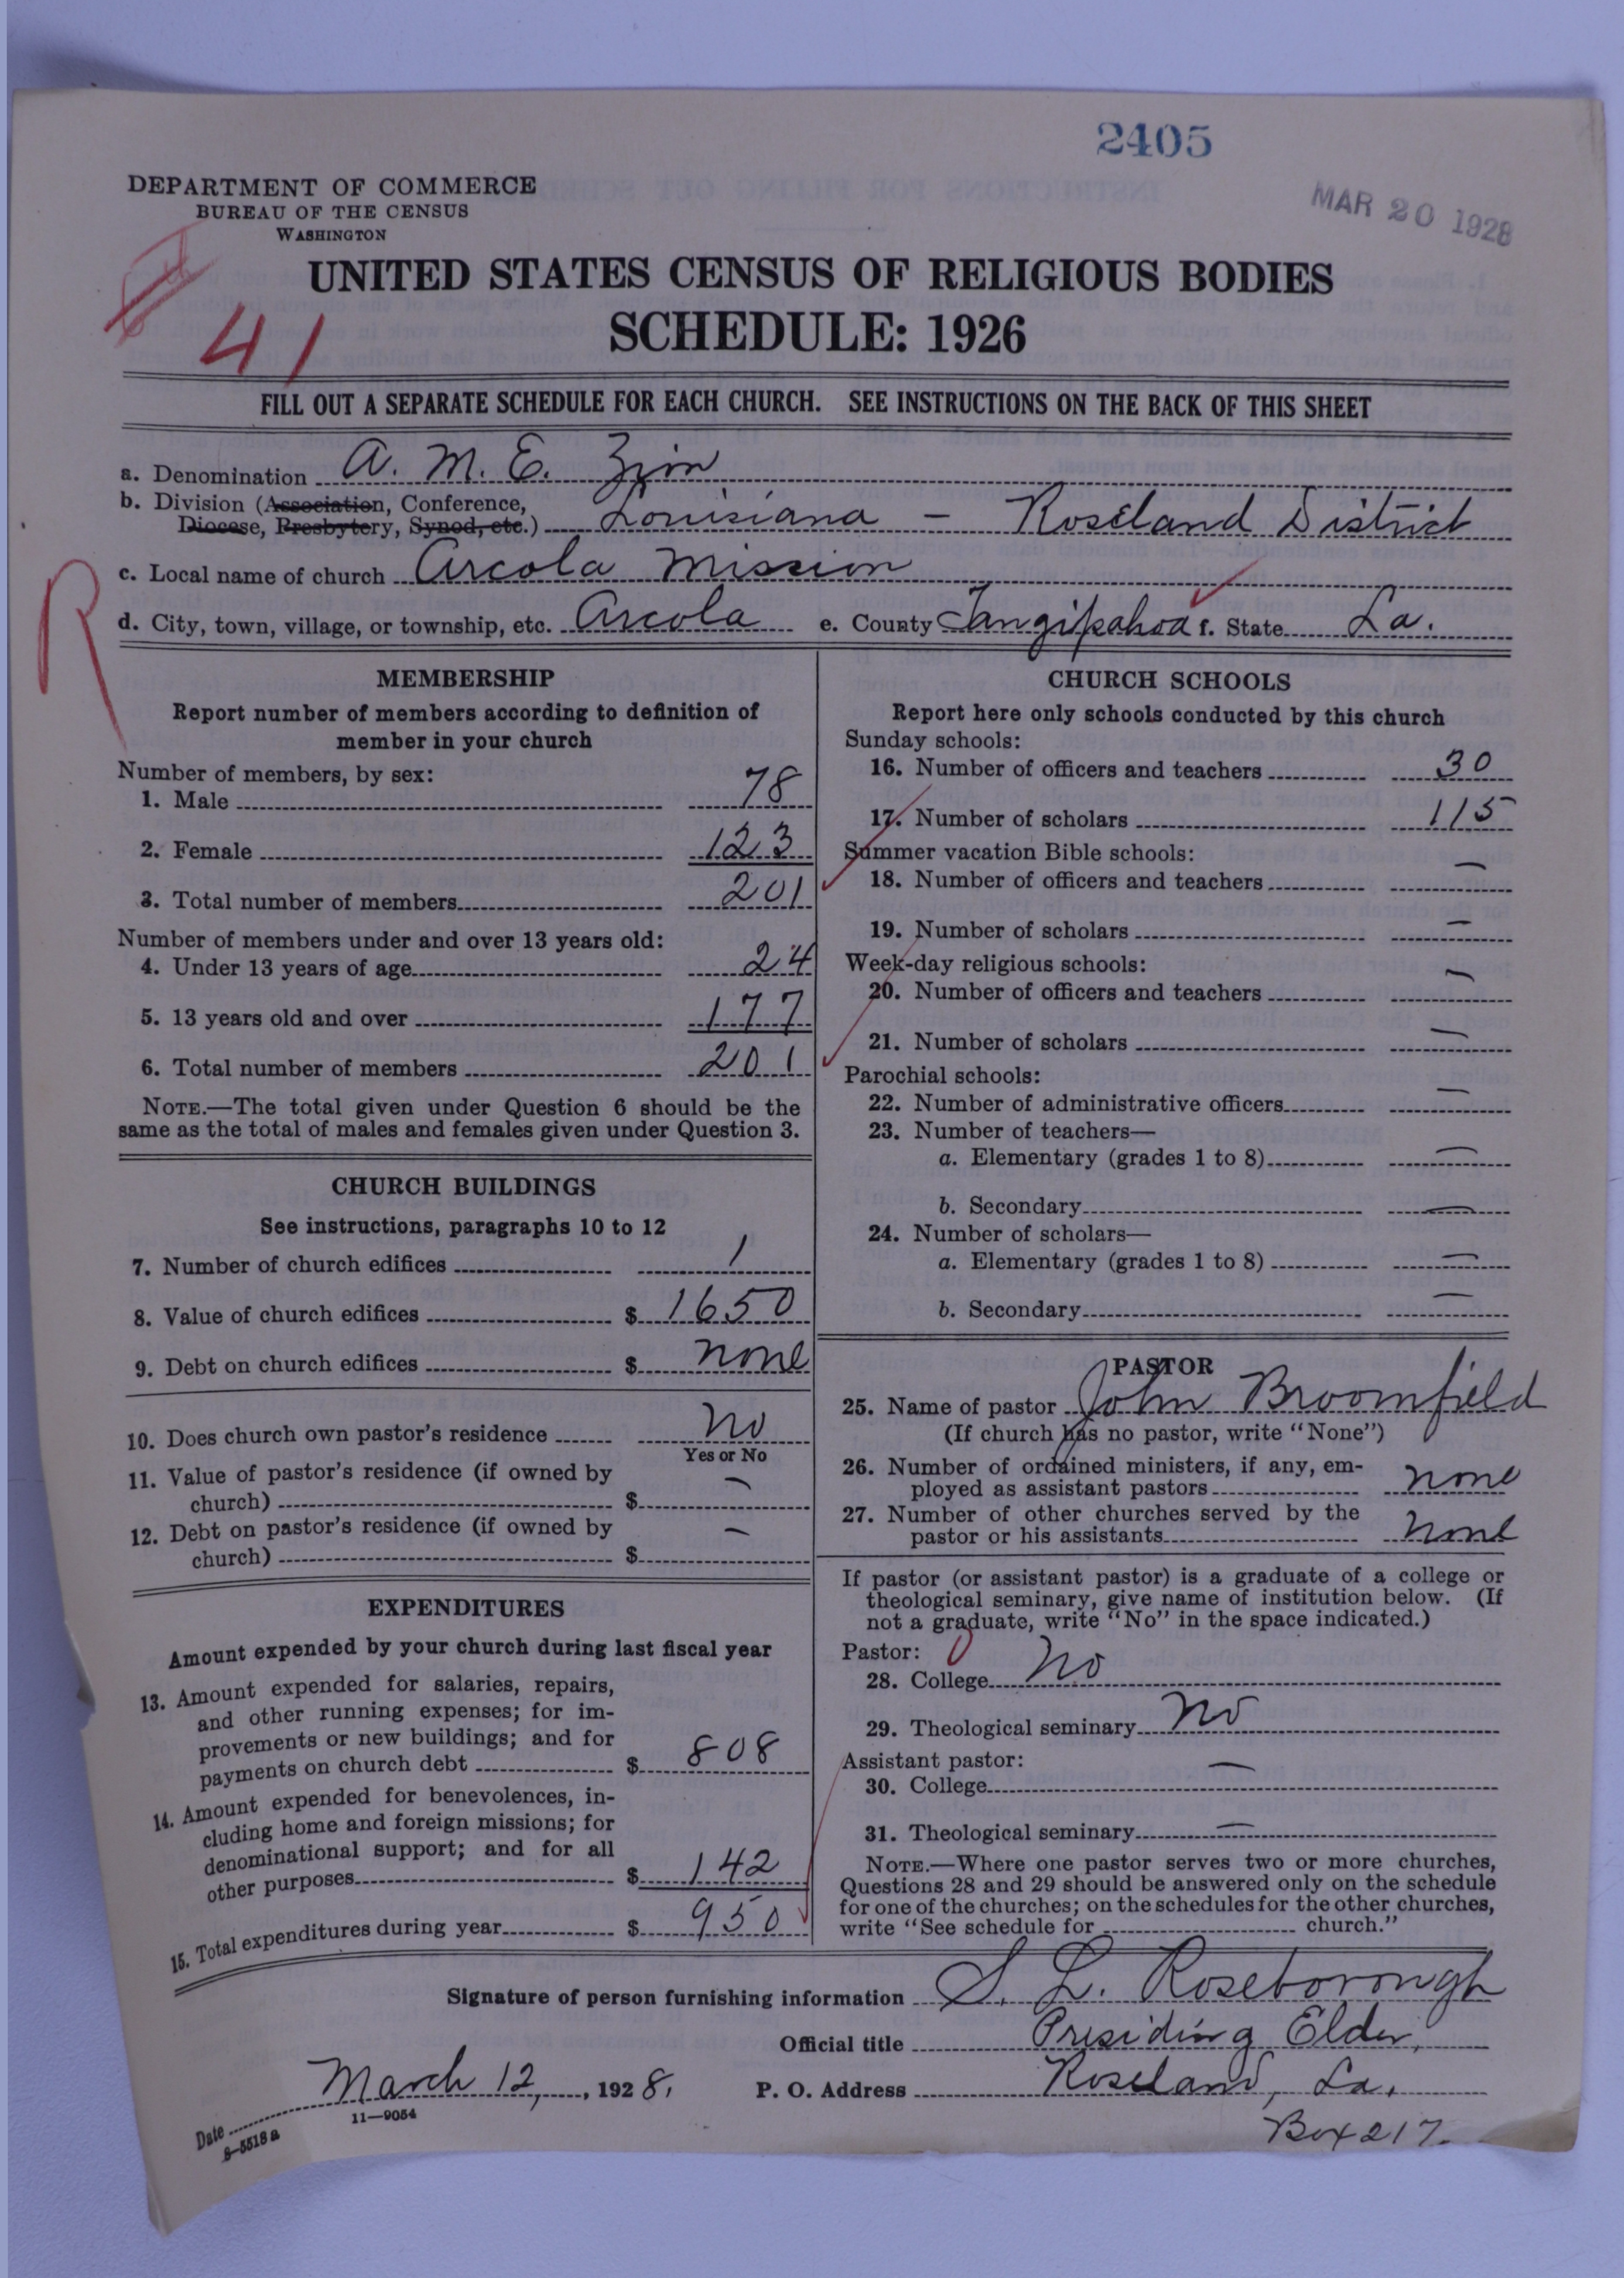 2405
MAR 20 1928
DEPARTMENT OF COMMERCE
BUREAU OF THE CENSUS
WASHINGTON
41
UNITED STATES CENSUS OF RELIGIOUS BODIES
SCHEDULE: 1926
FILL OUT A SEPARATE SCHEDULE FOR EACH CHURCH. SEE INSTRUCTIONS ON THE BACK OF THIS SHEET
a. Denomination A. M. E. Zion
b. Division (Association, Conference,
Diocese, Presbytery, Synod, etc.) Louisiana - Roseland District
R
c. Local name of church Arcola Mission
d. City, town, village, or township, etc. Arcola e. County Tangipahoa f. State La.
MEMBERSHIP
Report number of members according to definition of
member in your church
Number of members, by sex:
1. Male 78
2. Female 123
3. Total number of members 201
Number of members under and over 13 years old:
4. Under 13 years of age 24
5. 13 years old and over 177
6. Total number of members 201
NOTE.—The total given under Question 6 should be the
same as the total of males and females given under Question 3.
CHURCH BUILDINGS
See instructions, paragraphs 10 to 12
7. Number of church edifices 1
8. Value of church edifices $ 1650
9. Debt on church edifices $ none
10. Does church own pastor's residence No
Yes or No
11. Value of pastor's residence (if owned by
church) $ —
12. Debt on pastor's residence (if owned by
church) $ —
EXPENDITURES
Amount expended by your church during last fiscal year
13. Amount expended for salaries, repairs,
and other running expenses; for im-
provements or new buildings; and for
payments on church debt $ 808
14. Amount expended for benevolences, in-
cluding home and foreign missions; for
denominational support; and for all
other purposes $ 142
15. Total expenditures during year $ 950
CHURCH SCHOOLS
Report here only schools conducted by this church
Sunday schools:
16. Number of officers and teachers 30
17. Number of scholars 115
Summer vacation Bible schools:
18. Number of officers and teachers —
19. Number of scholars —
Week-day religious schools:
20. Number of officers and teachers —
21. Number of scholars —
Parochial schools:
22. Number of administrative officers —
23. Number of teachers—
a. Elementary (grades 1 to 8) —
b. Secondary —
24. Number of scholars—
a. Elementary (grades 1 to 8) —
b. Secondary —
PASTOR
25. Name of pastor John Broomfield
(If church has no pastor, write "None")
26. Number of ordained ministers, if any, em-
ployed as assistant pastors none
27. Number of other churches served by the
pastor or his assistants none
If pastor (or assistant pastor) is a graduate of a college or
theological seminary, give name of institution below. (If
not a graduate, write "No" in the space indicated.)
Pastor: 0
28. College No
29. Theological seminary No
Assistant pastor:
30. College —
31. Theological seminary —
NOTE.—Where one pastor serves two or more churches,
Questions 28 and 29 should be answered only on the schedule
for one of the churches; on the schedules for the other churches,
write "See schedule for church."
Signature of person furnishing information S. L. Roseborough
Official title Presiding Elder,
Date March 12, 1928. P. O. Address Roseland, La.
11—9054
8-5518a
Box 217.